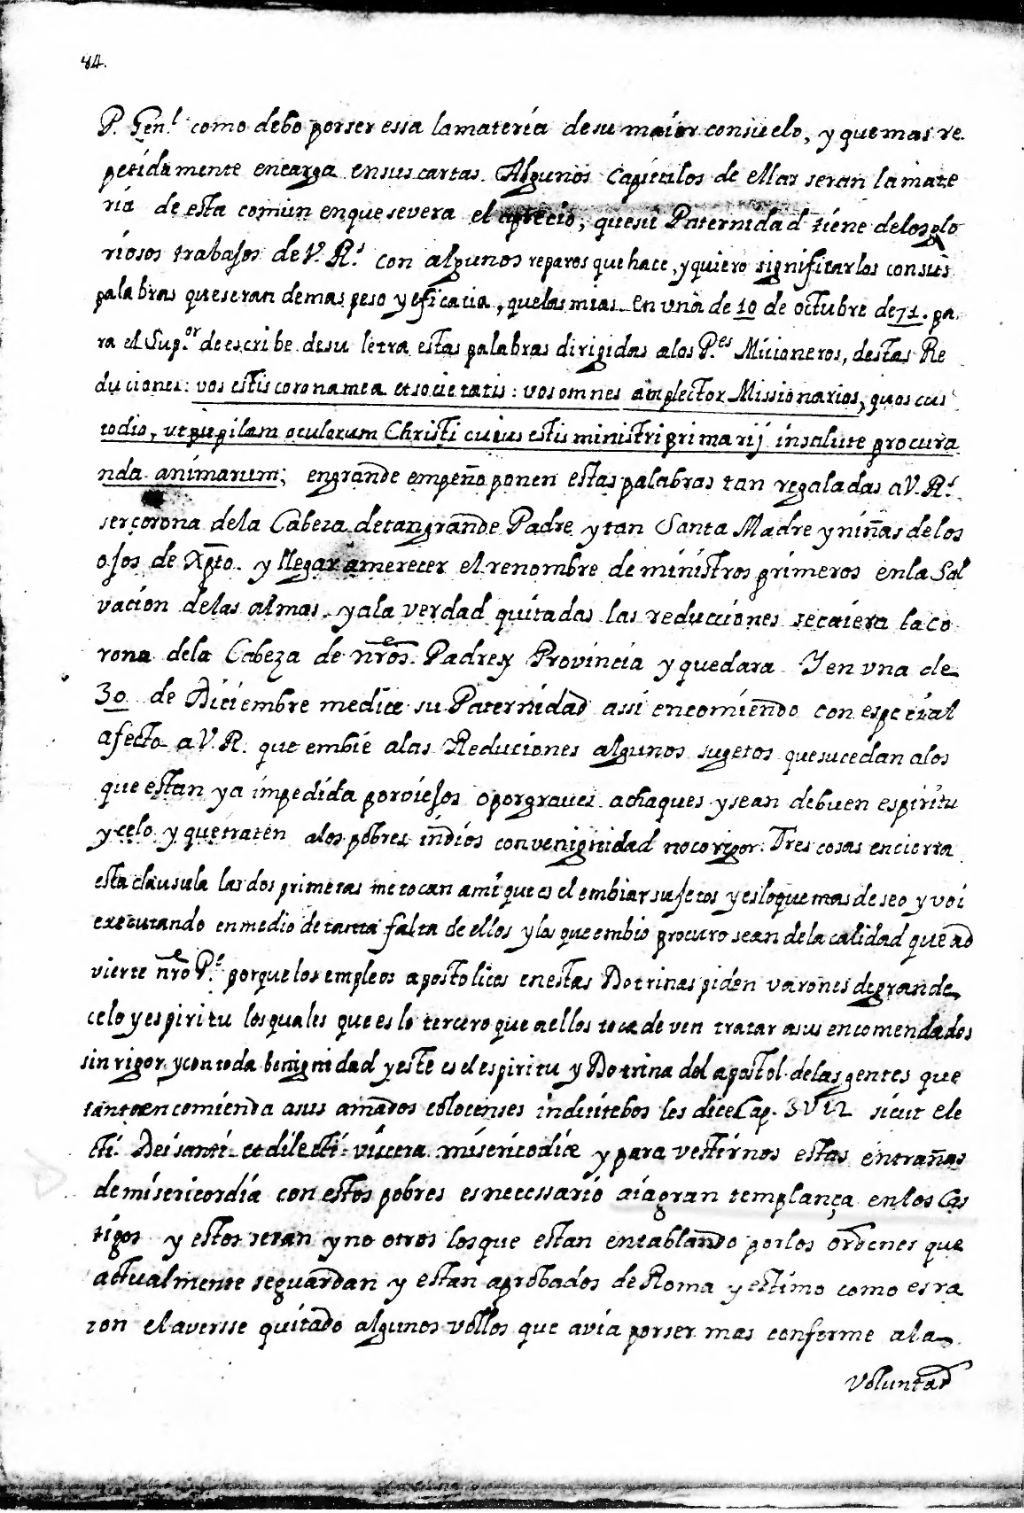 84.
P. Gen.l como debo por ser essa la materia de su maior consuelo, y que mas re
petidamente encarga en sus cartas. Algunos capitulos de ellas seran la mate
ria de esta comun en que se vera el aprecio, que su Paternidad tiene de los glo
riosos trabajos de V. R.s con algunos reparos que hace, y quiero significarlos con sus
palabras que seran de mas peso y eficacia, que las mias. en una de 10 de octubre de 71. pa
ra el Sup.or de escribe de su letra estas palabras dirigidas a los P.es Micioneros, destas Re
duciones: vos estis corona mea et societatis: vos omnes amplector Missionarios, quos cus
todio, ut pupilam oculorum Christi cuius estis ministri primarij in salute procura
nda animarum; en grande empeño ponen estas palabras tan regaladas a V. R.s
ser corona de la Cabeza de tan grande Padre y tan Santa Madre y niñas de los
ojos de Xpto. y llegar a merecer el renombre de ministros primeros en la Sal
vacion de las almas. y a la verdad quitadas las reducciones se caiera la co
rona de la Cabeza de nros. Padres y Provincia y quedara. Y en una de
30 de Diciembre me dice su Paternidad assi encomiendo con especial
afecto a V. R. que embie a las Reduciones algunos sugetos que sucedan a los
que estan ya impedida por viejos o por graves achaques y sean de buen espiritu
y celo y que traten a los pobres indios con venignidad no co rigor. Tres cosas encierra
esta clausula las dos primeras me tocan a mi que es el embiar sujetos y es lo que mas deseo y voi
executando en medio de tanta falta de ellos y los que embio procuro sean de la calidad que ad
vierte nro P.e porque los empleos apostolicos en estas Dotrinas piden varones de grande
celo y espiritu los quales que es lo tercero que a ellos toca deven tratar a sus encomendados
sin rigor y con toda benignidad y este es el espiritu y Dotrina del apostol de las gentes que
tanto encomienda a sus amados colocenses les dice Cap. 3 V 12 sicut ele
cti Dei santi et dilecti: viscera misericodiæ y para vestirnos estas entrañas
de misericordia con estos pobres es necessario aia gran templança en los Cas
tigos y estos seran y no otros los que estan entablando por los ordenes que
actualmente se guardan y estan aprobados de Roma y estimo como es ra
zon el aversse quitado algunos vollos que avia por ser mas conforme a la
Voluntad